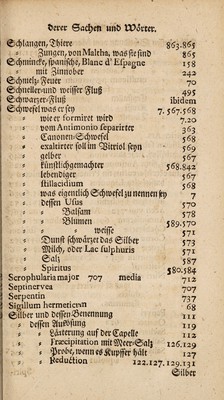 derer Sachen und Wörter.
Schlangen, Thiere 863.865
" Zungen, von Maltha, was sie sind 865
Schmincke, spanische, Blanc d'Espagne 158
" mit Zinnober 242
Schmeltz-Feuer 70
Schneller- und weisser Fluß 495
Schwartzer-Fluß ibidem
Schwefel was er sey 7.567.568
" wie er formiret wird 7.20
" vom Antimonio separirter 363
" Canonen-Schwefel 568
" exaltirter soll im Vitriol seyn 569
" gelber 567
" künstlichgemachter 568.842
" lebendiger 567
" stillacidium 568
" was eigentlich Schwefel zu nennen sey 7
" dessen Usus 570
" " Balsam 578
" " Blumen 589.570
" " " weisse 571
" Dunst schwärtzet das Silber 573
" Milch, oder Lac sulphuris 571
" Saltz 587
" Spiritus 580.584
Scrophularis major 707 media 712
Septinervea 707
Serpentin 737
Sigillum hermeticum 68
Silber und dessen Benennung 111
" dessen Auflösung 119
" " Läuterung auf der Capelle 112
" " Præcipitation mit Meer-Saltz 126.129
" " Probe, wenn es Kupffer hält 127
" " Reduction 122.127.129.131
Silber